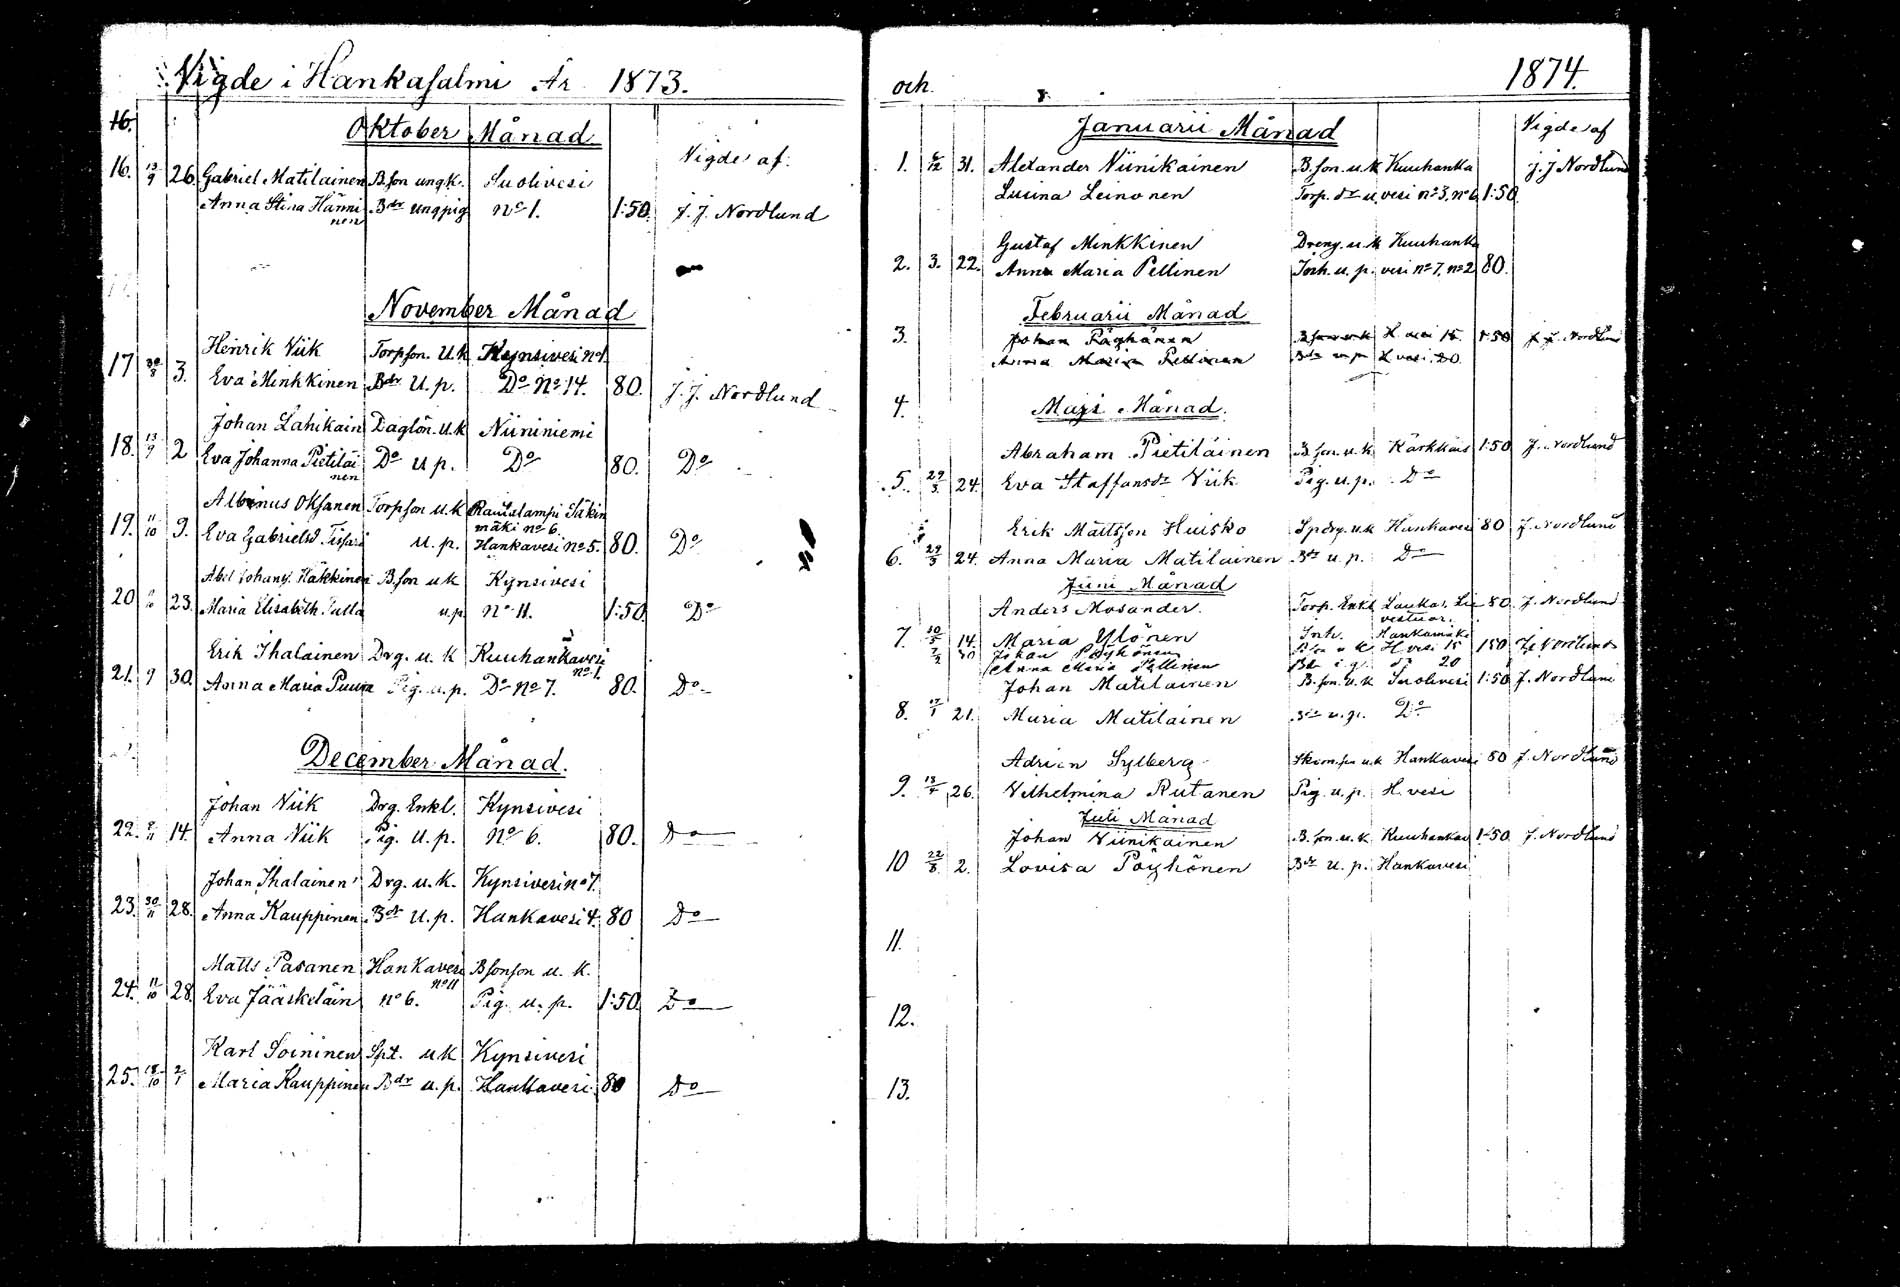 Vigde i Hankasalmi År 1873.
16.
Oktober Månad
Vigde af:
16. 13/9 26. Gabriel Matilainen B.son ungk. Suolivesi
Anna Stina Hänni Bdr ungpig no 1. 1:50. J. J. Nordlund
nen
November Månad
Henrik Niik Torpson. U.k Kynsivesi no 1.
17 3. Eva Minkkinen Bdr U.p. Do No 14. 80. J. J. Nordlund
Johan Lahikain Daglön. U.k Niininiemi
18. 13/9 2 Eva Johanna Pietiläi Do u p. Do 80. Do
nen
Albinus Oksanen Torpson u.k Rautalampi Säkin
mäki no 6.
19. 11/10 9. Eva Gabrielsd. Tissari u.p. Hankavesi No 5. 80. Do
Abel Johans. Häkkinen B.son u k Kynsivesi
20 23. Maria Elisabeth Tulla u.p no 11. 1:50. Do
Erik Ihalainen Drg. u. k Kuuhankavesi
no 1.
21. 9 30. Anna Maria Puura Pig. u. p. Do No 7. 80. Do
December Månad.
Johan Niik Drg. Enkl. Kynsivesi
22. 9/11 14. Anna Niik Pig. U. p. No 6. 80. Do
Johan Ihalainen Drg. u. k. Kynsivesi no 7.
23. 30/11 28. Anna Kauppinen Bdr U. p. Hankavesi 4. 80 Do
Matts Pasanen Hankavesi Bsonson u. k.
no 11
24. 11/10 28. Eva Jääskeläin no 6. Pig. u. p. 1:50. Do
Karl Soininen Spt. u.k Kynsivesi
25. 18/10 2/1 Maria Kauppinen Bdr u. p. Hankavesi. 80 Do
och. 1874.
Januarii Månad
Vigde af
1. 6/12 31. Alexander Niinikainen B.son. u. k Kuuhanka J. J Nordlund
Lusina Leinonen Torp. dr u. vesi no 3, no 6 1:50.
Gustaf Minkkinen Dreng. u. k Kuuhanka
2. 3. 22. Anna Maria Pellinen Inh. u. p. vesi no 7, no 2 80.
Februarii Månad
3. Johan Pöyhönen H vesi 15. 1:50 J. J. Nordlund
Anna Maria Pellinen H vesi. 20.
4. Maji Månad.
Abraham Pietiläinen B.son. u. k Kärkkäis 1:50 J. Nordlund
5. 29/3 24. Eva Staffansdr Niik Pig. u. p. Do
Erik Mattsson Huisko Spdrg. u.k Hankavesi 80 J. Nordlund
6. 29/3 24. Anna Maria Matilainen Bdr u. p. Do
Juni Månad
Anders Mosander. Torp. Enkl 80. J. Nordlund
7. 10/5 14. Maria Ylönen Inh. Hankamäki
Johan Pöyhönen H vesi 15 150 J. Nordlund
Anna Maria Pellinen 20
Johan Matilainen B. son. u. k Suolivesi 1:50 J. Nordlund
8. 21. Maria Matilainen Bdr u. p. Do
Adrian Sylberg u.k Hankavesi 80 J. Nordlund
9. 26. Vilhelmina Rutanen Pig. u. p. H. vesi
Juli Månad
Johan Niinikainen B. son. u. k Kuuhankav 1:50 J. Nordlund
10 2. Lovisa Pöyhönen Bdr u. p. Hankavesi
11.
12.
13.